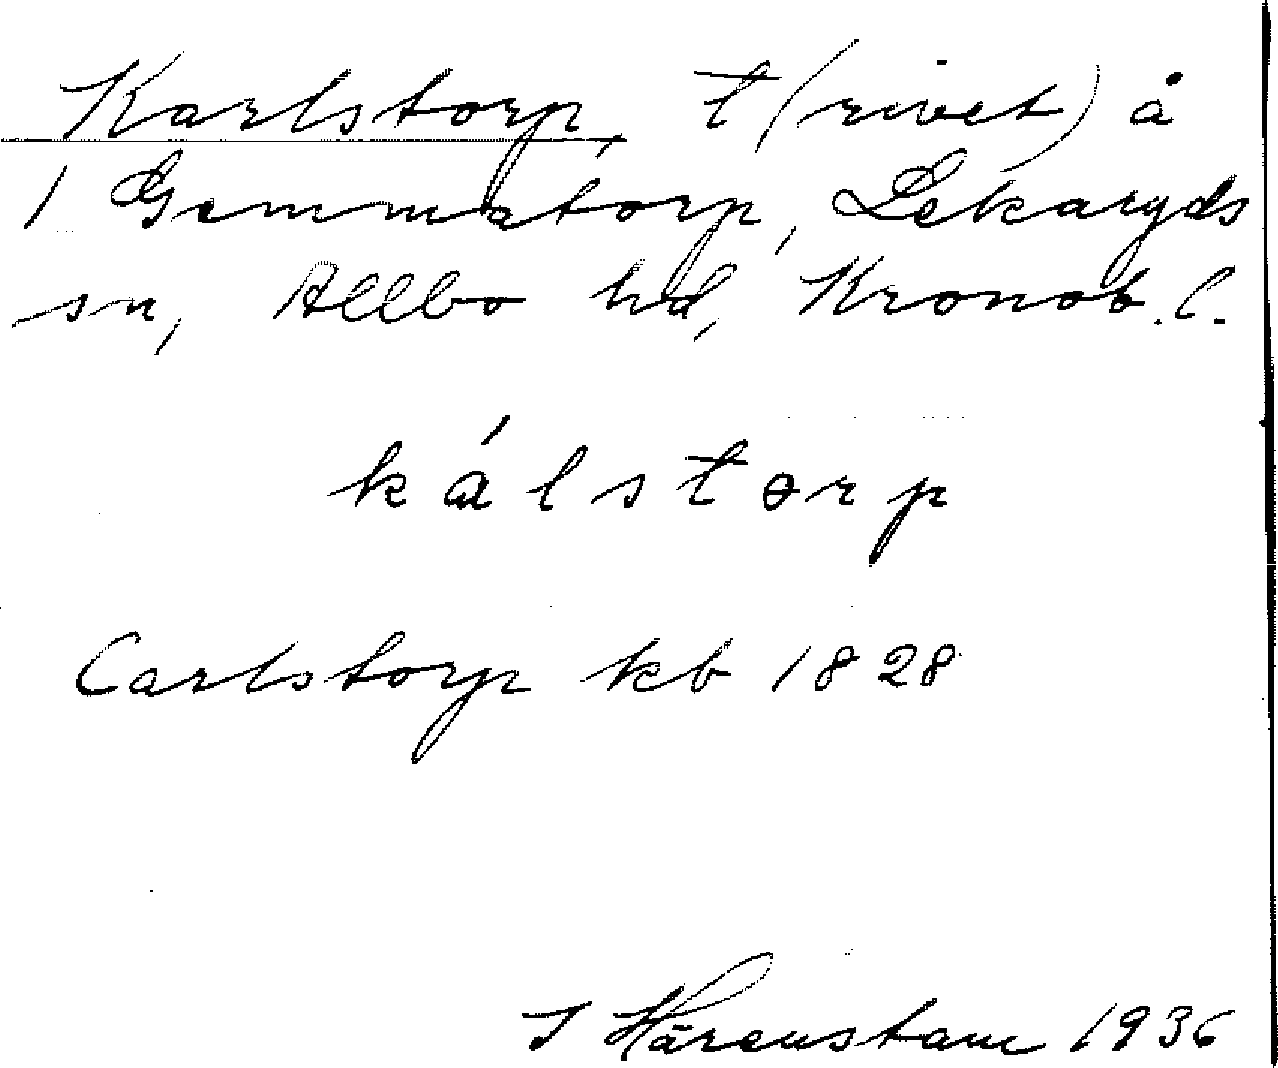 Karlstorp, t (rivet) å
1 Gemmatorp, Lekaryds
sn, Allbo hd, Kronob. l.
kálstorp
Carlstorp kb 1828
J Härenstam 1936